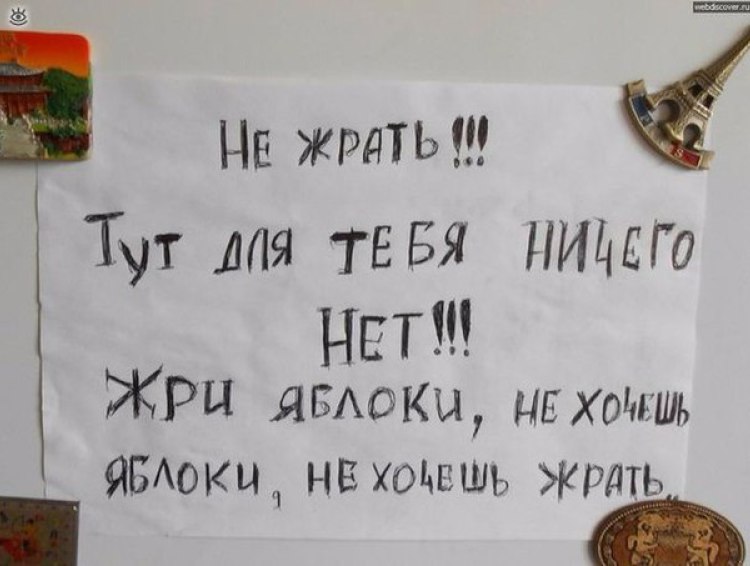 webdiscover.ru
Не жрать!!!
Тут для тебя ничего
Нет!!!
Жри яблоки, не хочешь
яблоки, не хочешь жрать..